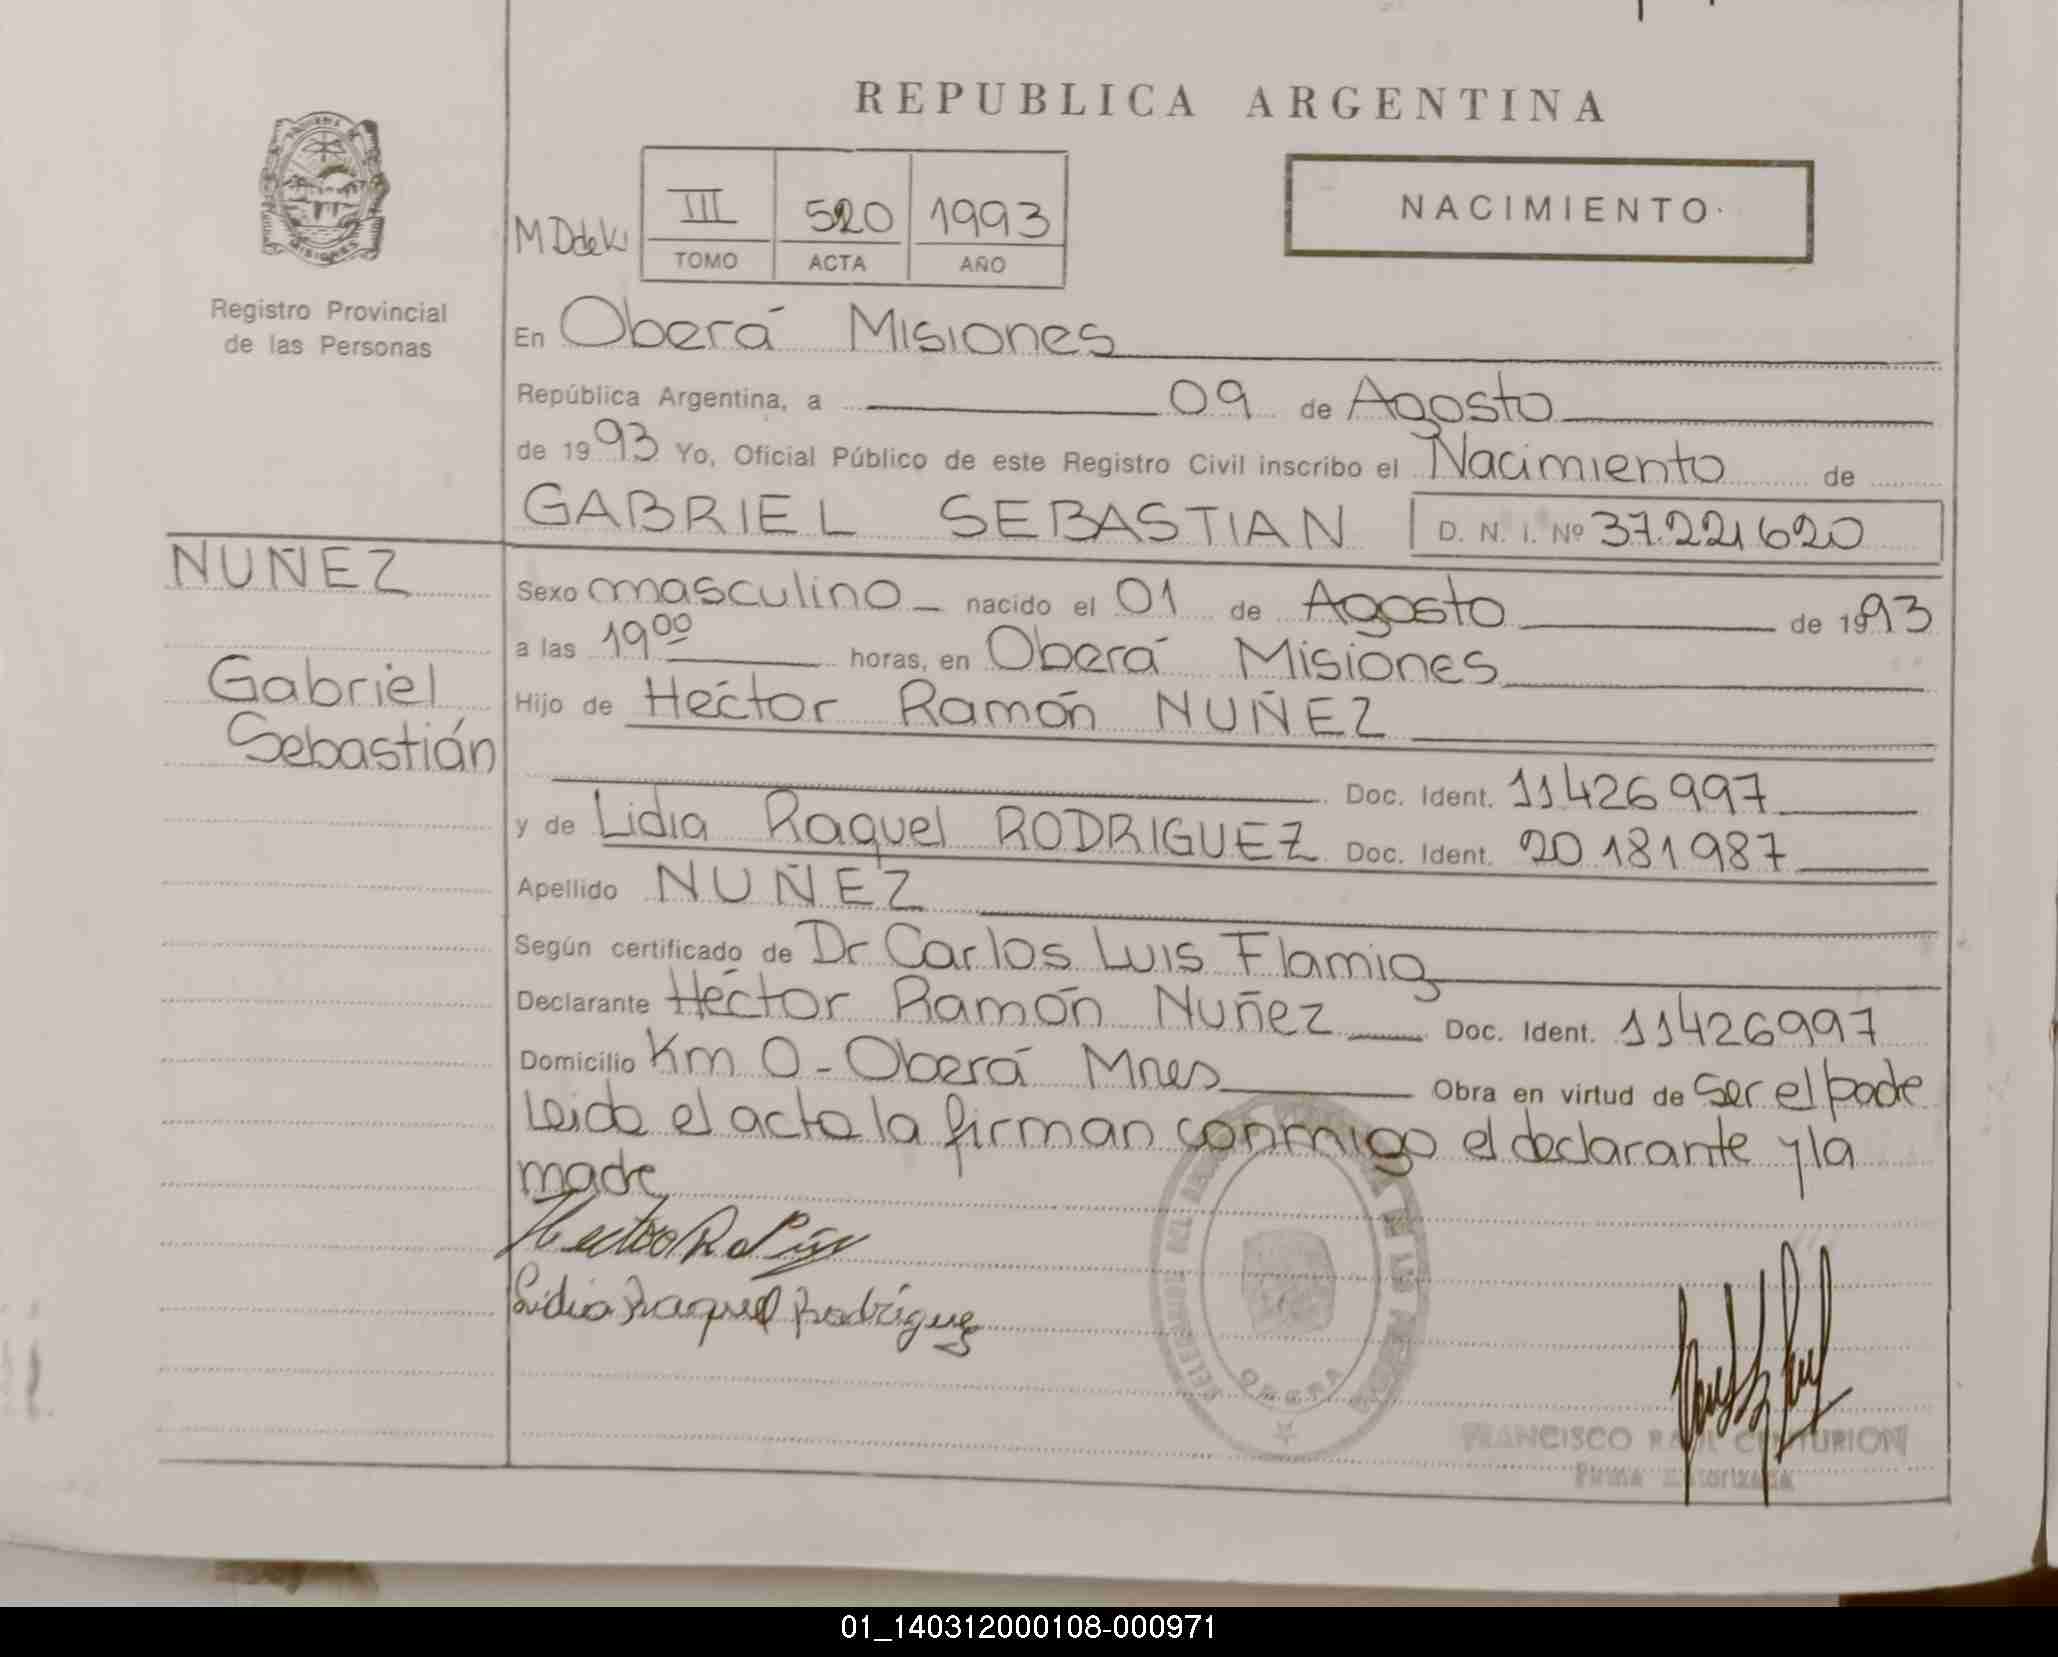 REPUBLICA ARGENTINA
NACIMIENTO
MISIONES
Registro Provincial
de las Personas
III 520 1993
TOMO ACTA AÑO
En Oberá Misiones
República Argentina, a 09 de Agosto
de 1993 Yo, Oficial Público de este Registro Civil inscribo el Nacimiento de
GABRIEL SEBASTIAN D. N. I. Nº 37.221620
NUÑEZ
Gabriel
Sebastián
Sexo masculino nacido el 01 de Agosto de 1993
a las 19⁰⁰ horas, en Oberá Misiones
Hijo de Héctor Ramón NUÑEZ
Doc. Ident. 11426997
y de Lidia Raquel RODRIGUEZ Doc. Ident. 20181987
Apellido NUÑEZ
Según certificado de Dr Carlos Luis Flamig
Declarante Héctor Ramón Nuñez Doc. Ident. 11426997
Domicilio Km 0 - Oberá Mnes Obra en virtud de ser el padre
Leida el acta la firman conmigo el declarante y la
madre
Lidia Raquel Rodríguez
OBERA
FRANCISCO RAUL CENTURION
Firma Autorizada
01_140312000108-000971